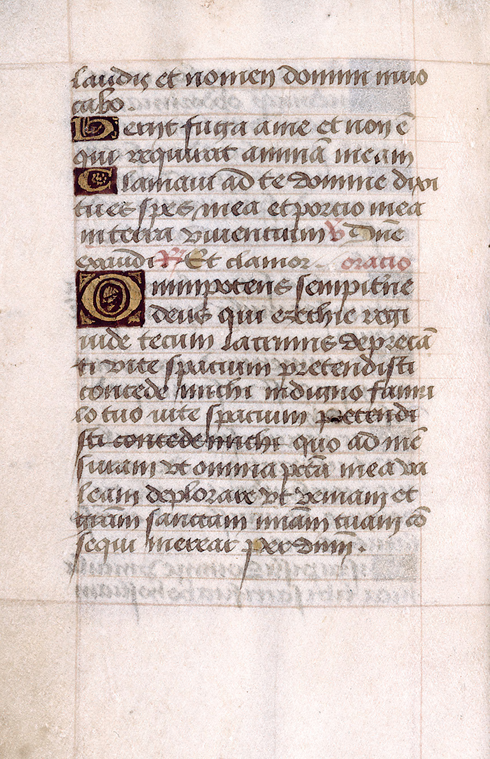 laudis et nomen domini invo
cabo
Periit fuga a me et non ē
qui requirat animā meam
Clamavi ad te domine dixi
tu es spes mea et portio mea
in terra viventium V Dñe
exaudi R Et clamor oratio
Omnipotens sempitñe
deus qui ezechie regi
iude tecum lacrimis deprecā
ti vite spacium pretendisti
concede michi indigno famu
lo tuo vite spacium pretendi
sti concede michi quo ad mē
suram vt omnia pctā mea va
leam deplorare vt veniam et
grām sanctam misām tuam cō
sequi merear per dnm.